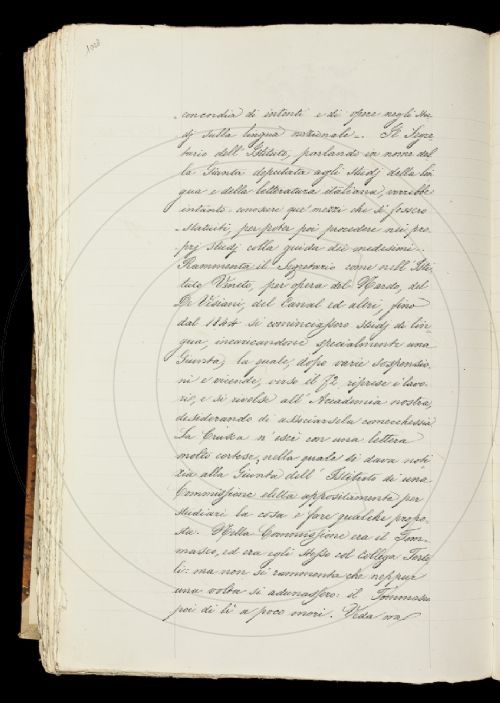 concordia di intenti e di opere negli Stu
dj sulla lingua nazionale. Il Segre
tario dell'Istituto, parlando in nome del
la Giunta deputata agli Studj della lin
gua e della letteratura italiana, vorrebbe
intanto conoscere que' mezzi che si fossero
statuiti, per poter poi procedere nei pro
prj studj colla guida dei medesimi.
Rammenta il Segretario come nell'Isti
tuto Veneto, per opera del Nardo, del
De Visiani, del Canal ed altri, fino
dal 1844 si cominciassero studj di lin
gua, incaricandone specialmente una
Giunta; la quale, dopo varie sospensio
ni e vicende, verso il 72 riprese i lavo
ri, e si rivolse all'Accademia nostra,
desiderando di associarsela comecchessia
La Crusca n'uscì con una lettera
molto cortese, nella quale si dava noti
zia alla Giunta dell'Istituto di una
Commissione eletta appositamente per
studiare la cosa e fare qualche propo
sta. Nella Commissione era il Tom
maseo, ed era egli stesso col collega Torto
li: ma non si rammenta che neppur
una volta si adunassero: il Tommaseo
poi di lì a poco morì. Veda ora